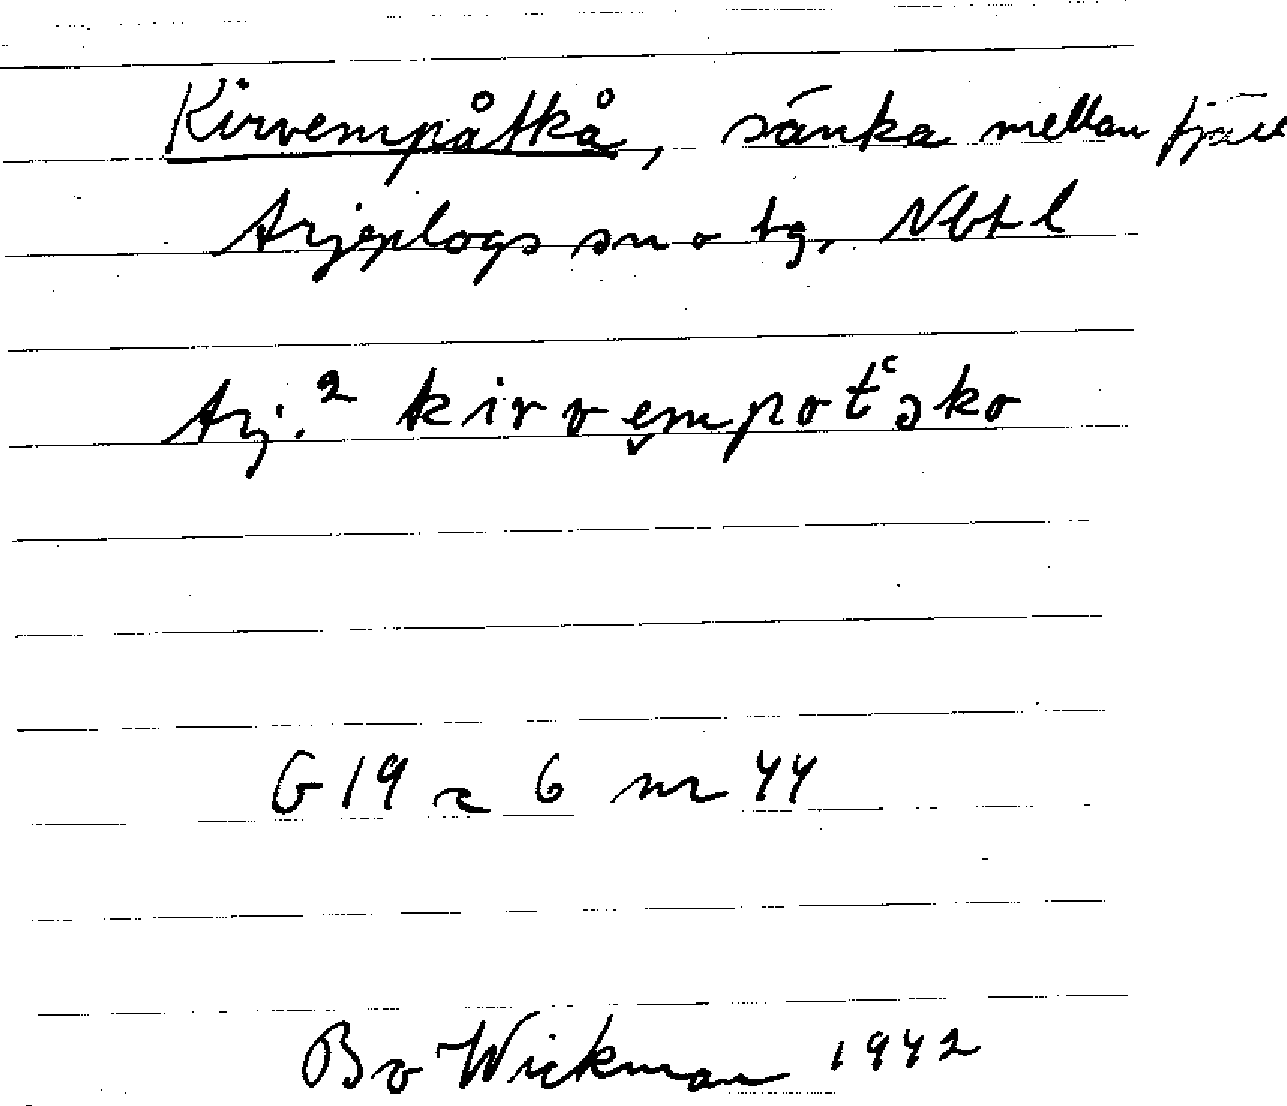 Kirvempåtkå, sänka mellan fjäll
Arjeplogs sn o tg, Nbtl
Arj.² kirvem̬poť͑əko
G19 a 6 nr 44
Bo Wickman 1942